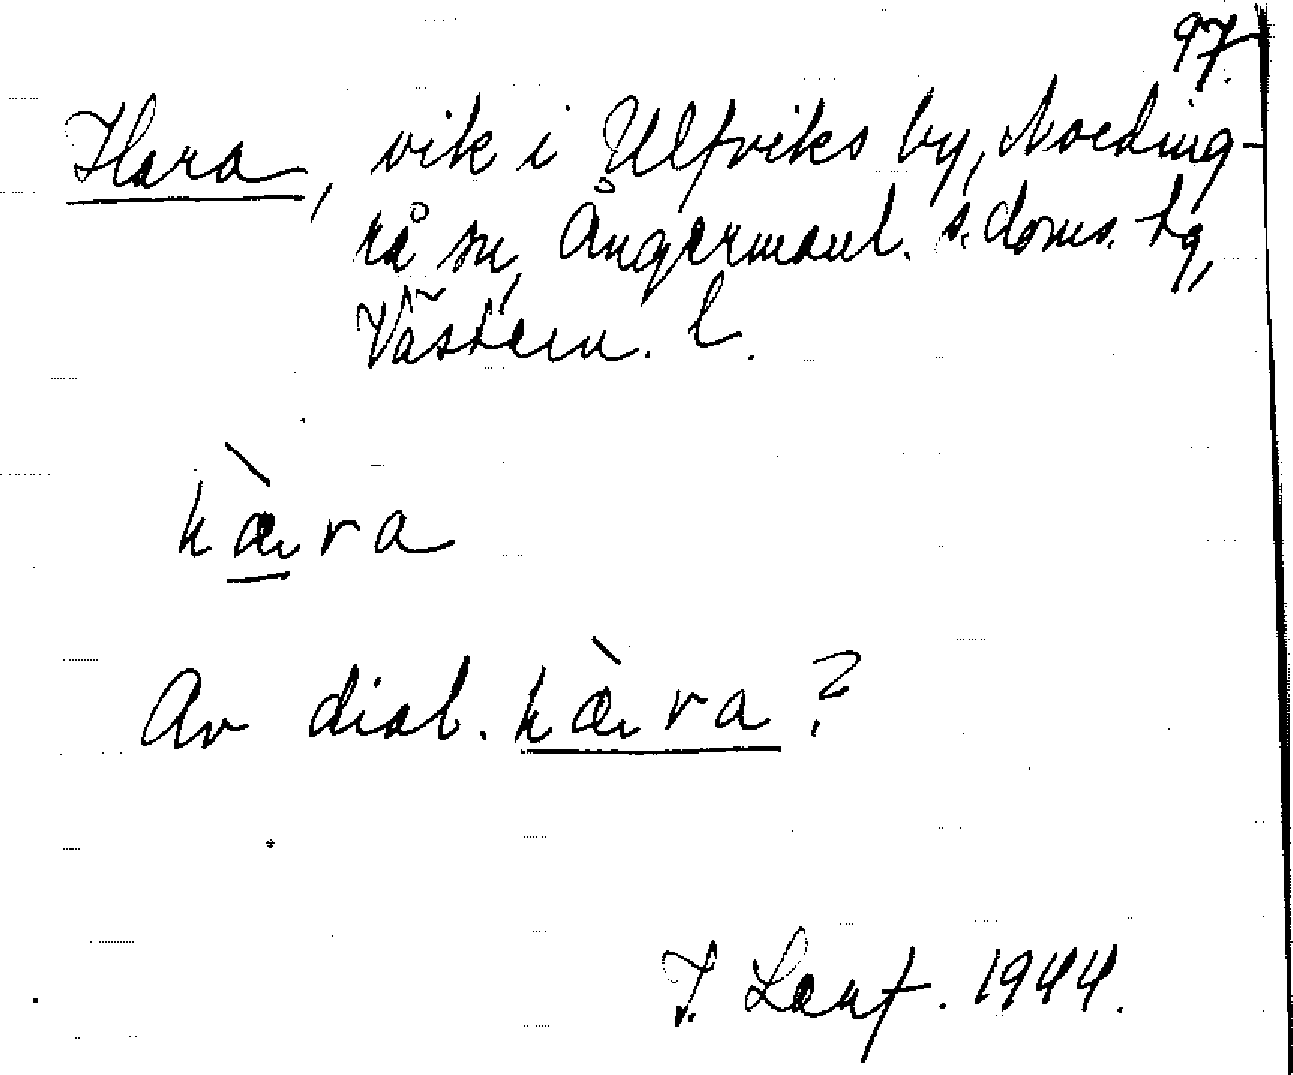 97.
Hara, vik i Ulfviks by, Nording-
rå sn, Ångermanl. s. doms. tg,
Västern. l.
hæ̀ra
Av dial. hæ̀ra?
1944.